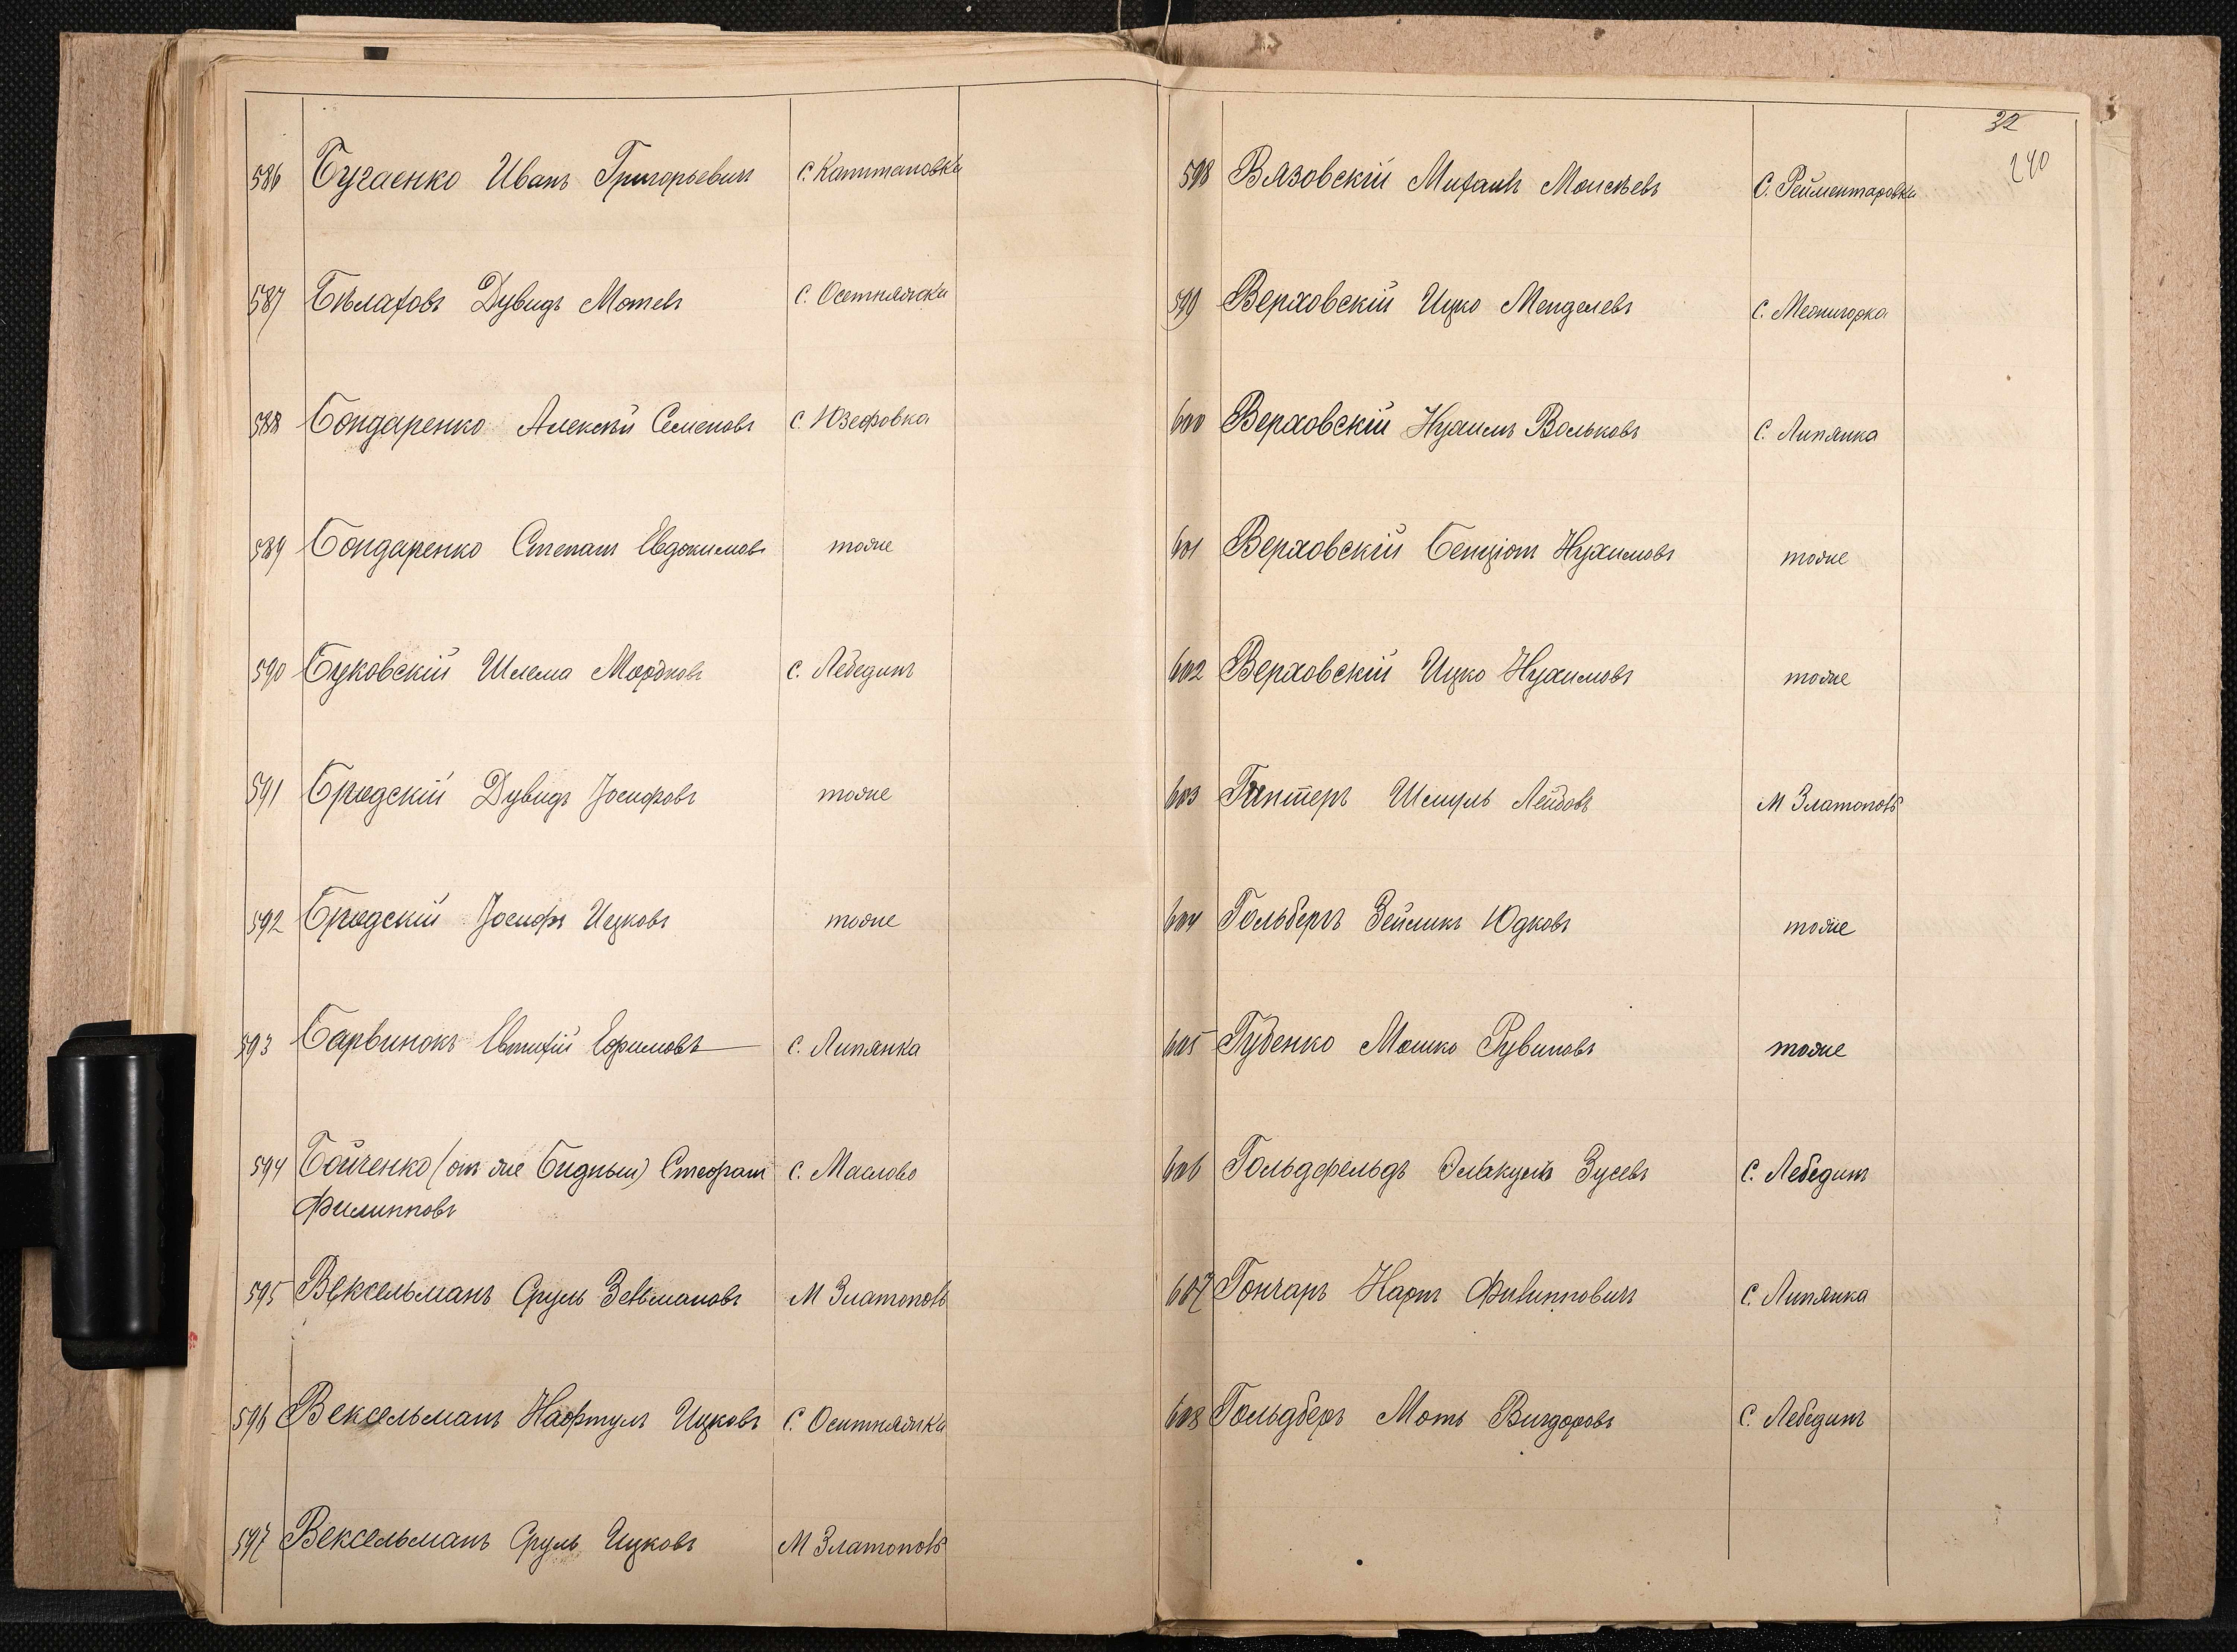 586 Бугаенко Иванъ Григорьевич с. Капитановка
587 Бѣлаховъ Дувидъ Мотев с. Осетняжка
588 Бондаренко Алексѣй Семеновъ с. Юзефовка
589 Бондаренко Степанъ Евдокимовъ тоже
590 Буковскій Шлема Мордковъ с. Лебединъ
591 Бродскій Дувидъ Іосифовъ тоже
592 Бродскій Іосифъ Ицковъ тоже
593 Барвинокъ Евтихій Ефимовъ с. Липянка
594 Бойченко (он же Бидный) Стефанъ с. Маслово
Филипповъ
595 Вексельманъ Сруль Зельмановъ М Златополь
596 Вексельманъ Нафтулъ Ицковъ с. Оситняжка
597 Вексельманъ Сруль Ицковъ М Златополь
32
240
598 Вязовскій Михаилъ Моисѣевъ с. Рейментаровка
599 Верховскій Ицко Менделевъ с. Межигорка
600 Верховскій Нухимъ Вольковъ с. Липянка
601 Верховскій Бенціонъ Нухимовъ тоже
602 Верховскій Ицко Нухимовъ тоже
603 Гинтеръ Шмуль Лейбовъ М Златополь
604 Гольбергъ Зейликъ Юдковъ тоже
605 Губенко Мошко Рувиновъ тоже
606 Гольдфельдъ Зусевъ с. Лебединъ
607 Гончаръ Карпъ Филипповичъ с. Липянка
608 Гольдберъ Моть Вигдоровъ с. Лебединъ